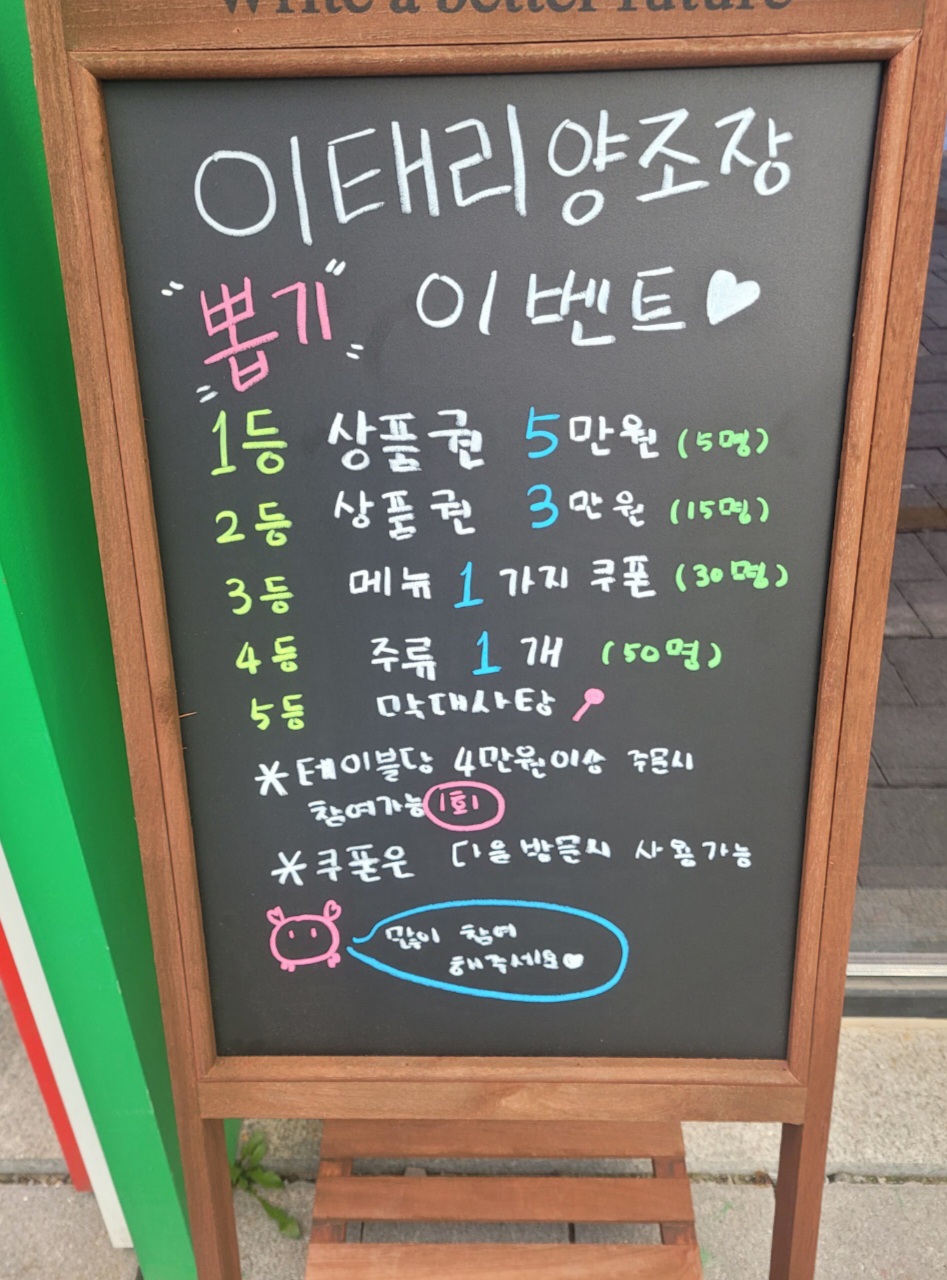 Write a better future
이태리양조장
"뽑기" 이벤트♥
1등 상품권 5만원 (5명)
2등 상품권 3만원 (15명)
3등 메뉴 1가지 쿠폰 (30명)
4등 주류 1개 (50명)
5등 막대사탕
*테이블당 4만원이상 주문시
참여가능 1회
*쿠폰은 다음 방문시 사용가능
많이 참여
해주세요♥